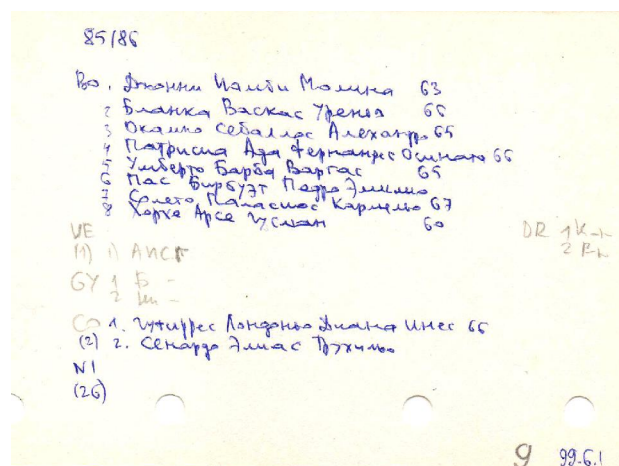 85/86
Bo. Джонни Молина 63
2 Бланка Васкас Уренья 66
3 Окампо Себаллос Алехандро 65
4 Патрисиа Ада Фернандес Осинаго 66
5 Умберто Барба Варгас 65
6 Пас Педро Эмилио
7 Солето Паласиос Кармело 67
8 Хорхе Арсе Гусман 60
VE DR 1 К-
(1) 1) АИСТ 2 Р-
GY 1 Б -
2 -
CO 1. Гутиррес Лондоньо Диана Инес 66
(2) 2. Сенардо Элиас Трухильо
NI
(26)
9 99.6.1